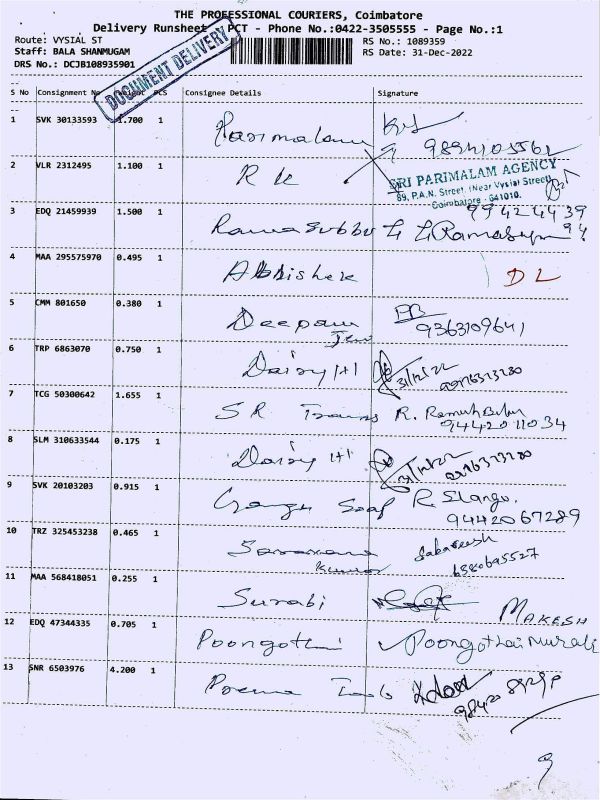 THE PROFESSIONAL COURIERS, Coimbatore
Delivery Runsheet PCT - Phone No.:0422-3505555 - Page No.:1
Route: VYSIAL ST RS No.: 1089359
Staff: BALA SHANMUGAM RS Date: 31-Dec-2022
DRS No.: DCJB108935901
DOCUMENT DELIVERY
S No Consignment No Weight PCS Consignee Details Signature
1 SVK 30133593 1.700 1 Parimalam
2 VLR 2312495 1.100 1 R K
SRI PARIMALAM AGENCY
89, P.A.N. Street, (Near Vysial Street)
Coimbatore - 641010.
3 EDQ 21459939 1.500 1 Ramasubbu
4 MAA 295575970 0.495 1 Abhishek DL
5 CMM 801650 0.380 1 Deepam 9363109641
6 TRP 6863070 0.750 1 Daisy 31/12/22
7 TCG 50300642 1.655 1 SR Trans R. Ramesh Babu
9442011034
8 SLM 310633544 0.175 1 Daisy 31/12/22
9 SVK 20103203 0.915 1 Ganga Soap R. Elango,
9442067289
10 TRZ 325453238 0.465 1 Saravana
Kumar 6380695527
11 MAA 568418051 0.255 1 Surabi MAKESH
12 EDQ 47344335 0.705 1 Poongothai Poongothai Murali
13 SNR 6503976 4.200 1